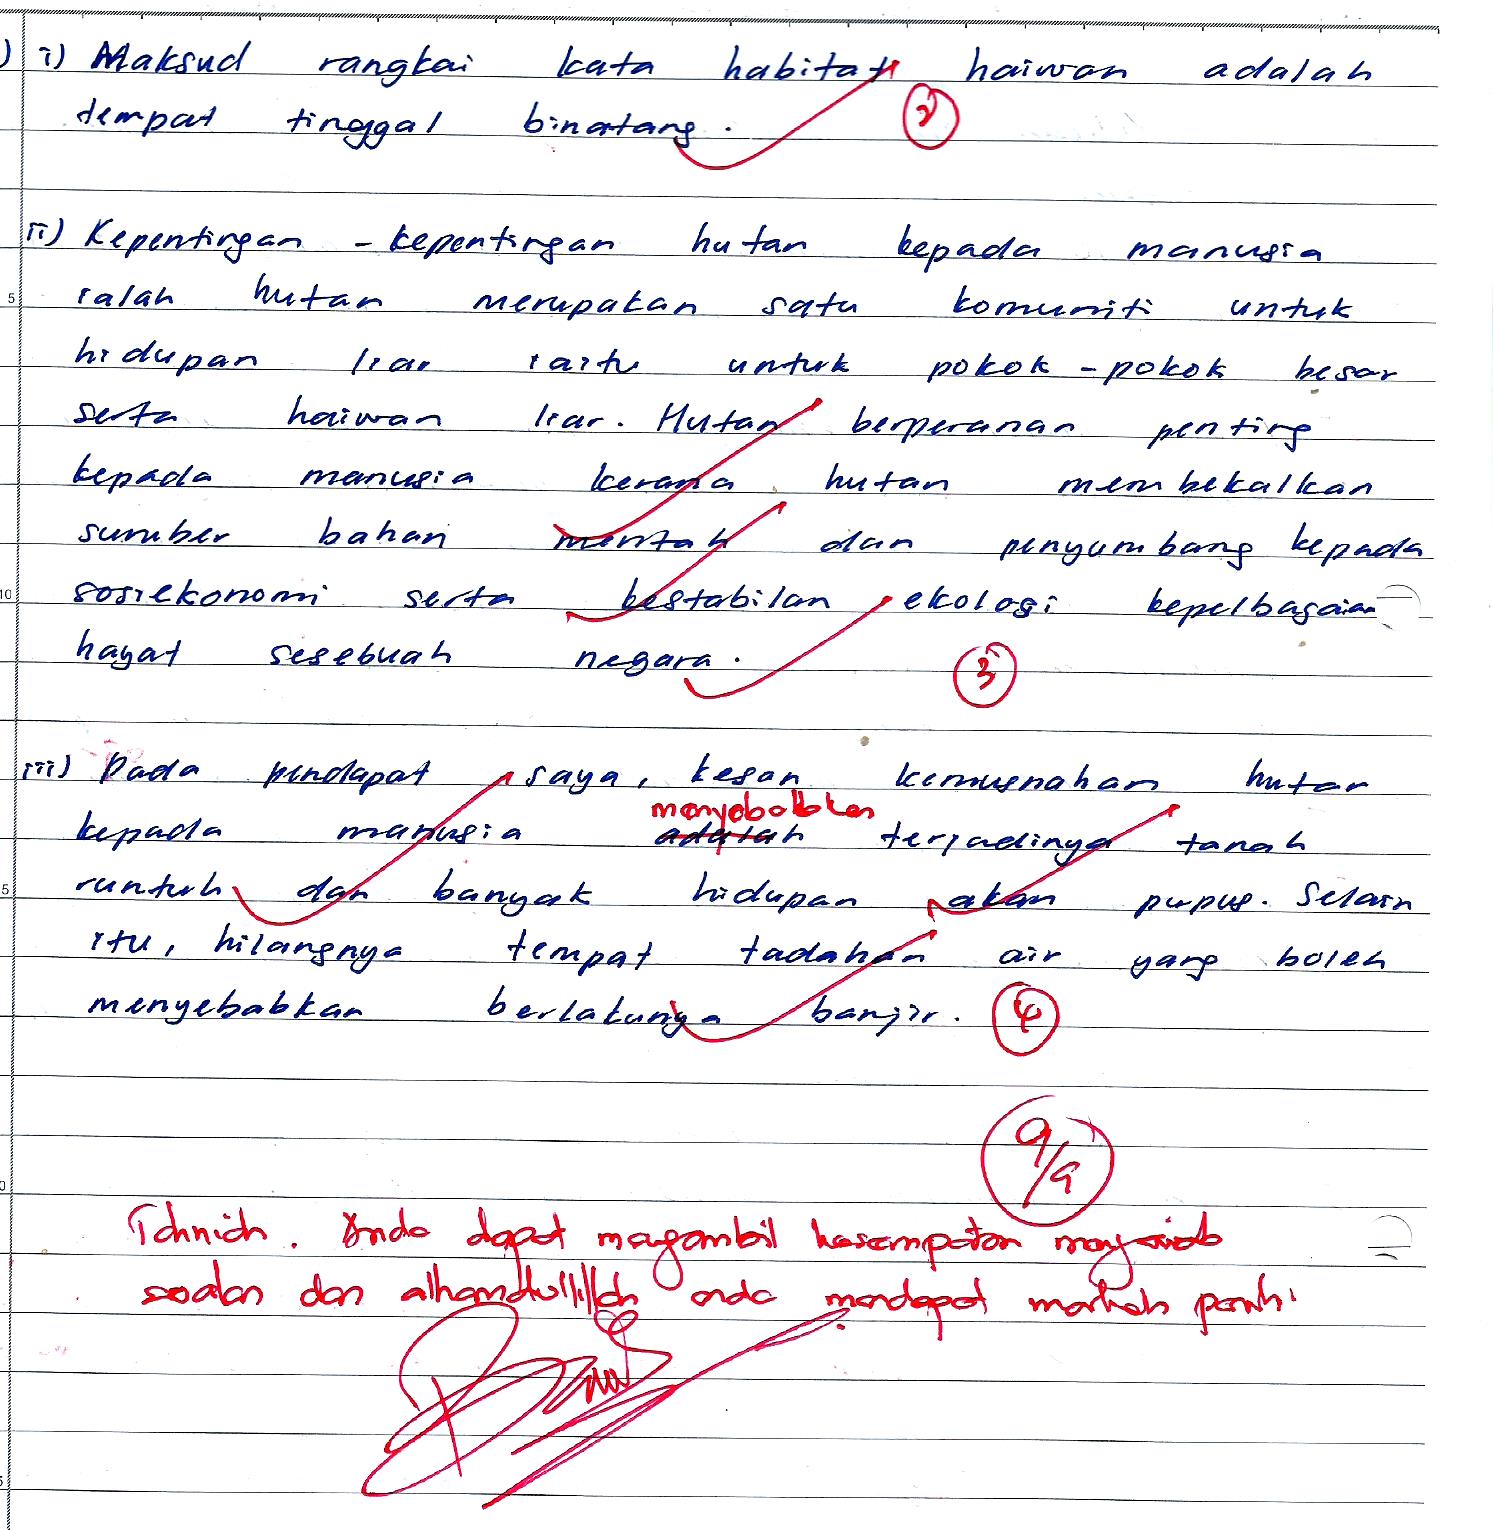 ) i) Maksud rangkai kata habitat haiwan adalah
tempat tinggal binatang.
2
ii) Kepentingan - kepentingan hutan kepada manusia
5 ialah hutan merupakan satu komuniti untuk
hidupan liar iaitu untuk pokok - pokok besar
serta haiwan liar. Hutan berperanan penting
kepada manusia kerana hutan membekalkan
sumber bahan mentah dan penyumbang kepada
10 sosiekonomi serta kestabilan ekologi kepelbagaian
hayat sesebuah negara.
3
iii) Pada pendapat saya, kesan kemusnahan hutan
menyebabkan
kepada manusia adalah terjadinya tanah
5 runtuh dan banyak hidupan akan pupus. Selain
itu, hilangnya tempat tadahan air yang boleh
menyebabkan berlakunya banjir. 4
9/9
0
Tahniah. Anda dapat mengambil kesempatan menjawab
soalan dan alhamdulillah anda mendapat markah penuh.
5